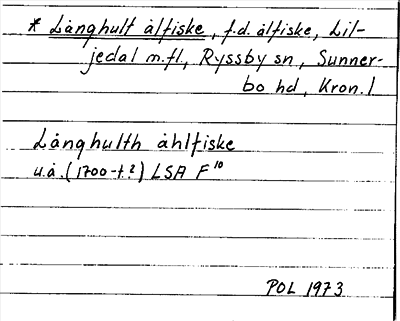 * Långhult ålfiske, f.d. ålfiske, Lil-
jedal m.fl., Ryssby sn, Sunner-
bo hd, Kron. l
Långhulth åhlfiske
u.å. (1700-t.?) LSA F 10
POL 1973